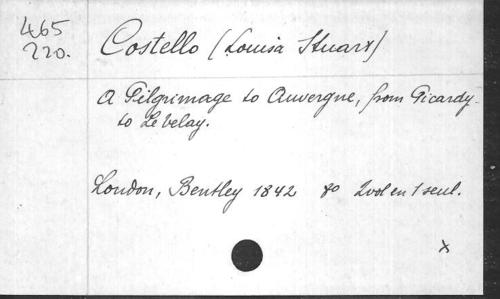 465
220.
Costello (Louisa Stuart)
A Pilgrimage to Auvergne, from Picardy
to Le Velay.
London, Bentley 1842 8o 2 vol en 1 seul.
x